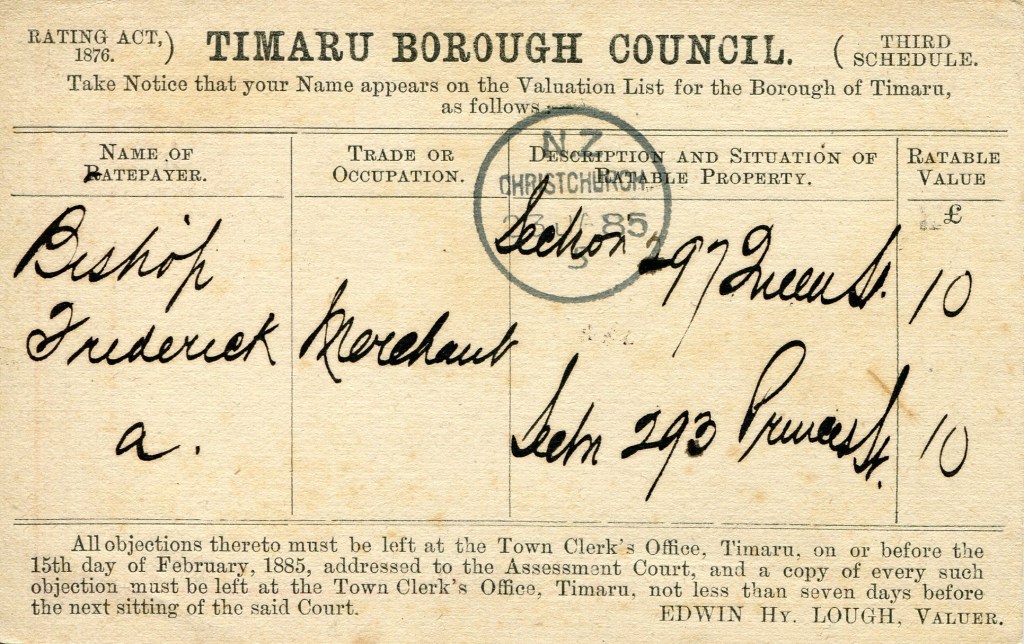 RATING ACT, 1876.) TIMARU BOROUGH COUNCIL. (THIRD SCHEDULE.
Take Notice that your Name appears on the Valuation List for the Borough of Timaru,
as follows:—
NAME OF RATEPAYER.
TRADE OR OCCUPATION.
DESCRIPTION AND SITUATION OF RATABLE PROPERTY.
RATABLE VALUE
£
N Z
CHRISTCHURCH
85
Bishop
Section 297 Queen St. 10
Frederick Merchant
a. Sectn 293 Princes St. 10
All objections thereto must be left at the Town Clerk's Office, Timaru, on or before the
15th day of February, 1885, addressed to the Assessment Court, and a copy of every such
objection must be left at the Town Clerk's Office, Timaru, not less than seven days before
the next sitting of the said Court. EDWIN HY. LOUGH, VALUER.